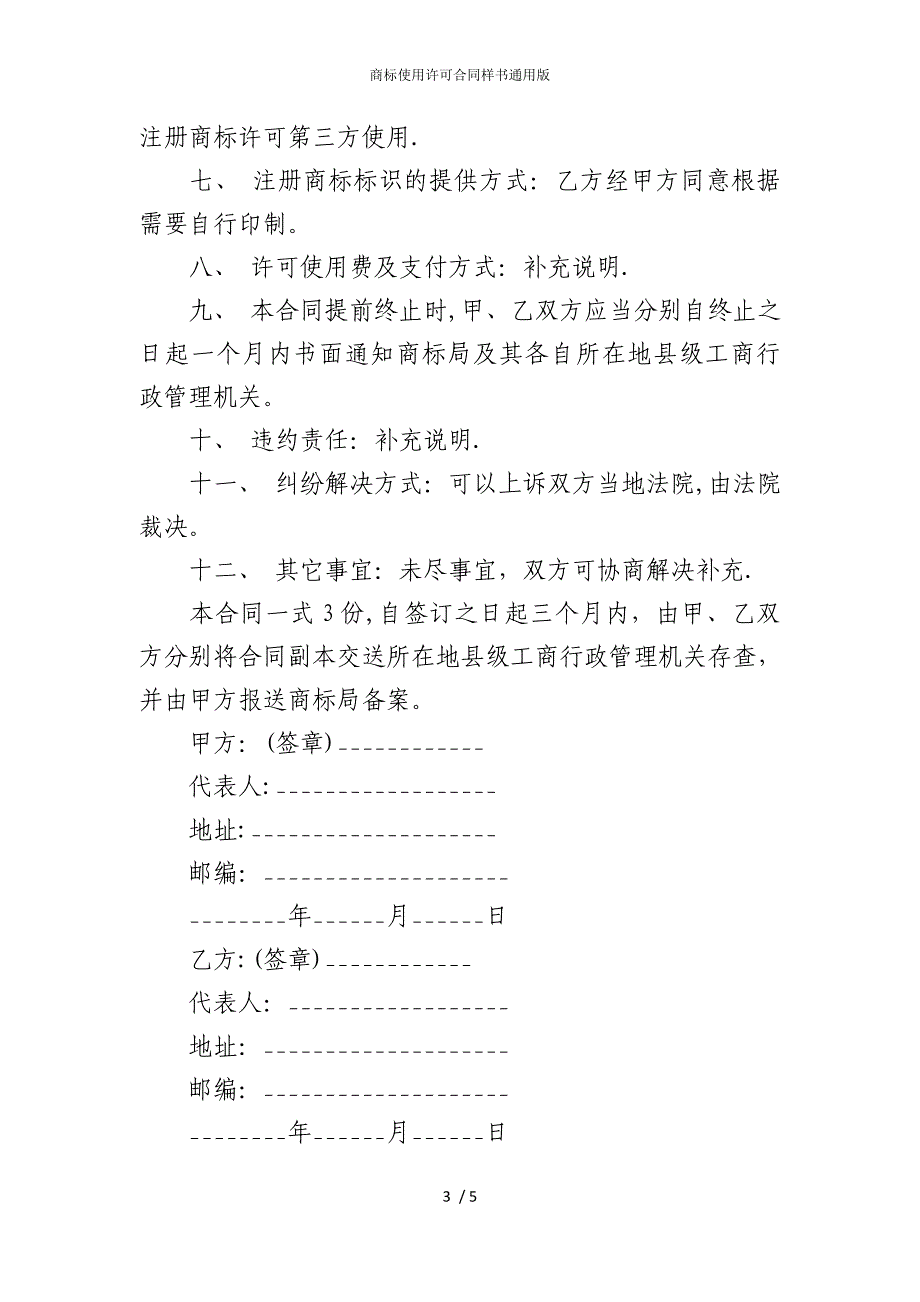 商标使用许可合同样书通用版
注册商标许可第三方使用.
七、 注册商标标识的提供方式：乙方经甲方同意根据
需要自行印制。
八、 许可使用费及支付方式：补充说明.
九、 本合同提前终止时,甲、乙双方应当分别自终止之
日起一个月内书面通知商标局及其各自所在地县级工商行
政管理机关。
十、 违约责任：补充说明.
十一、 纠纷解决方式：可以上诉双方当地法院,由法院
裁决。
十二、 其它事宜：未尽事宜，双方可协商解决补充.
本合同一式 3 份,自签订之日起三个月内，由甲、乙双
方分别将合同副本交送所在地县级工商行政管理机关存查，
并由甲方报送商标局备案。
甲方： (签章)____________
代表人:__________________
地址:____________________
邮编： ____________________
________年______月______日
乙方:(签章)____________
代表人： __________________
地址： ____________________
邮编： ____________________
________年______月______日
3 / 5